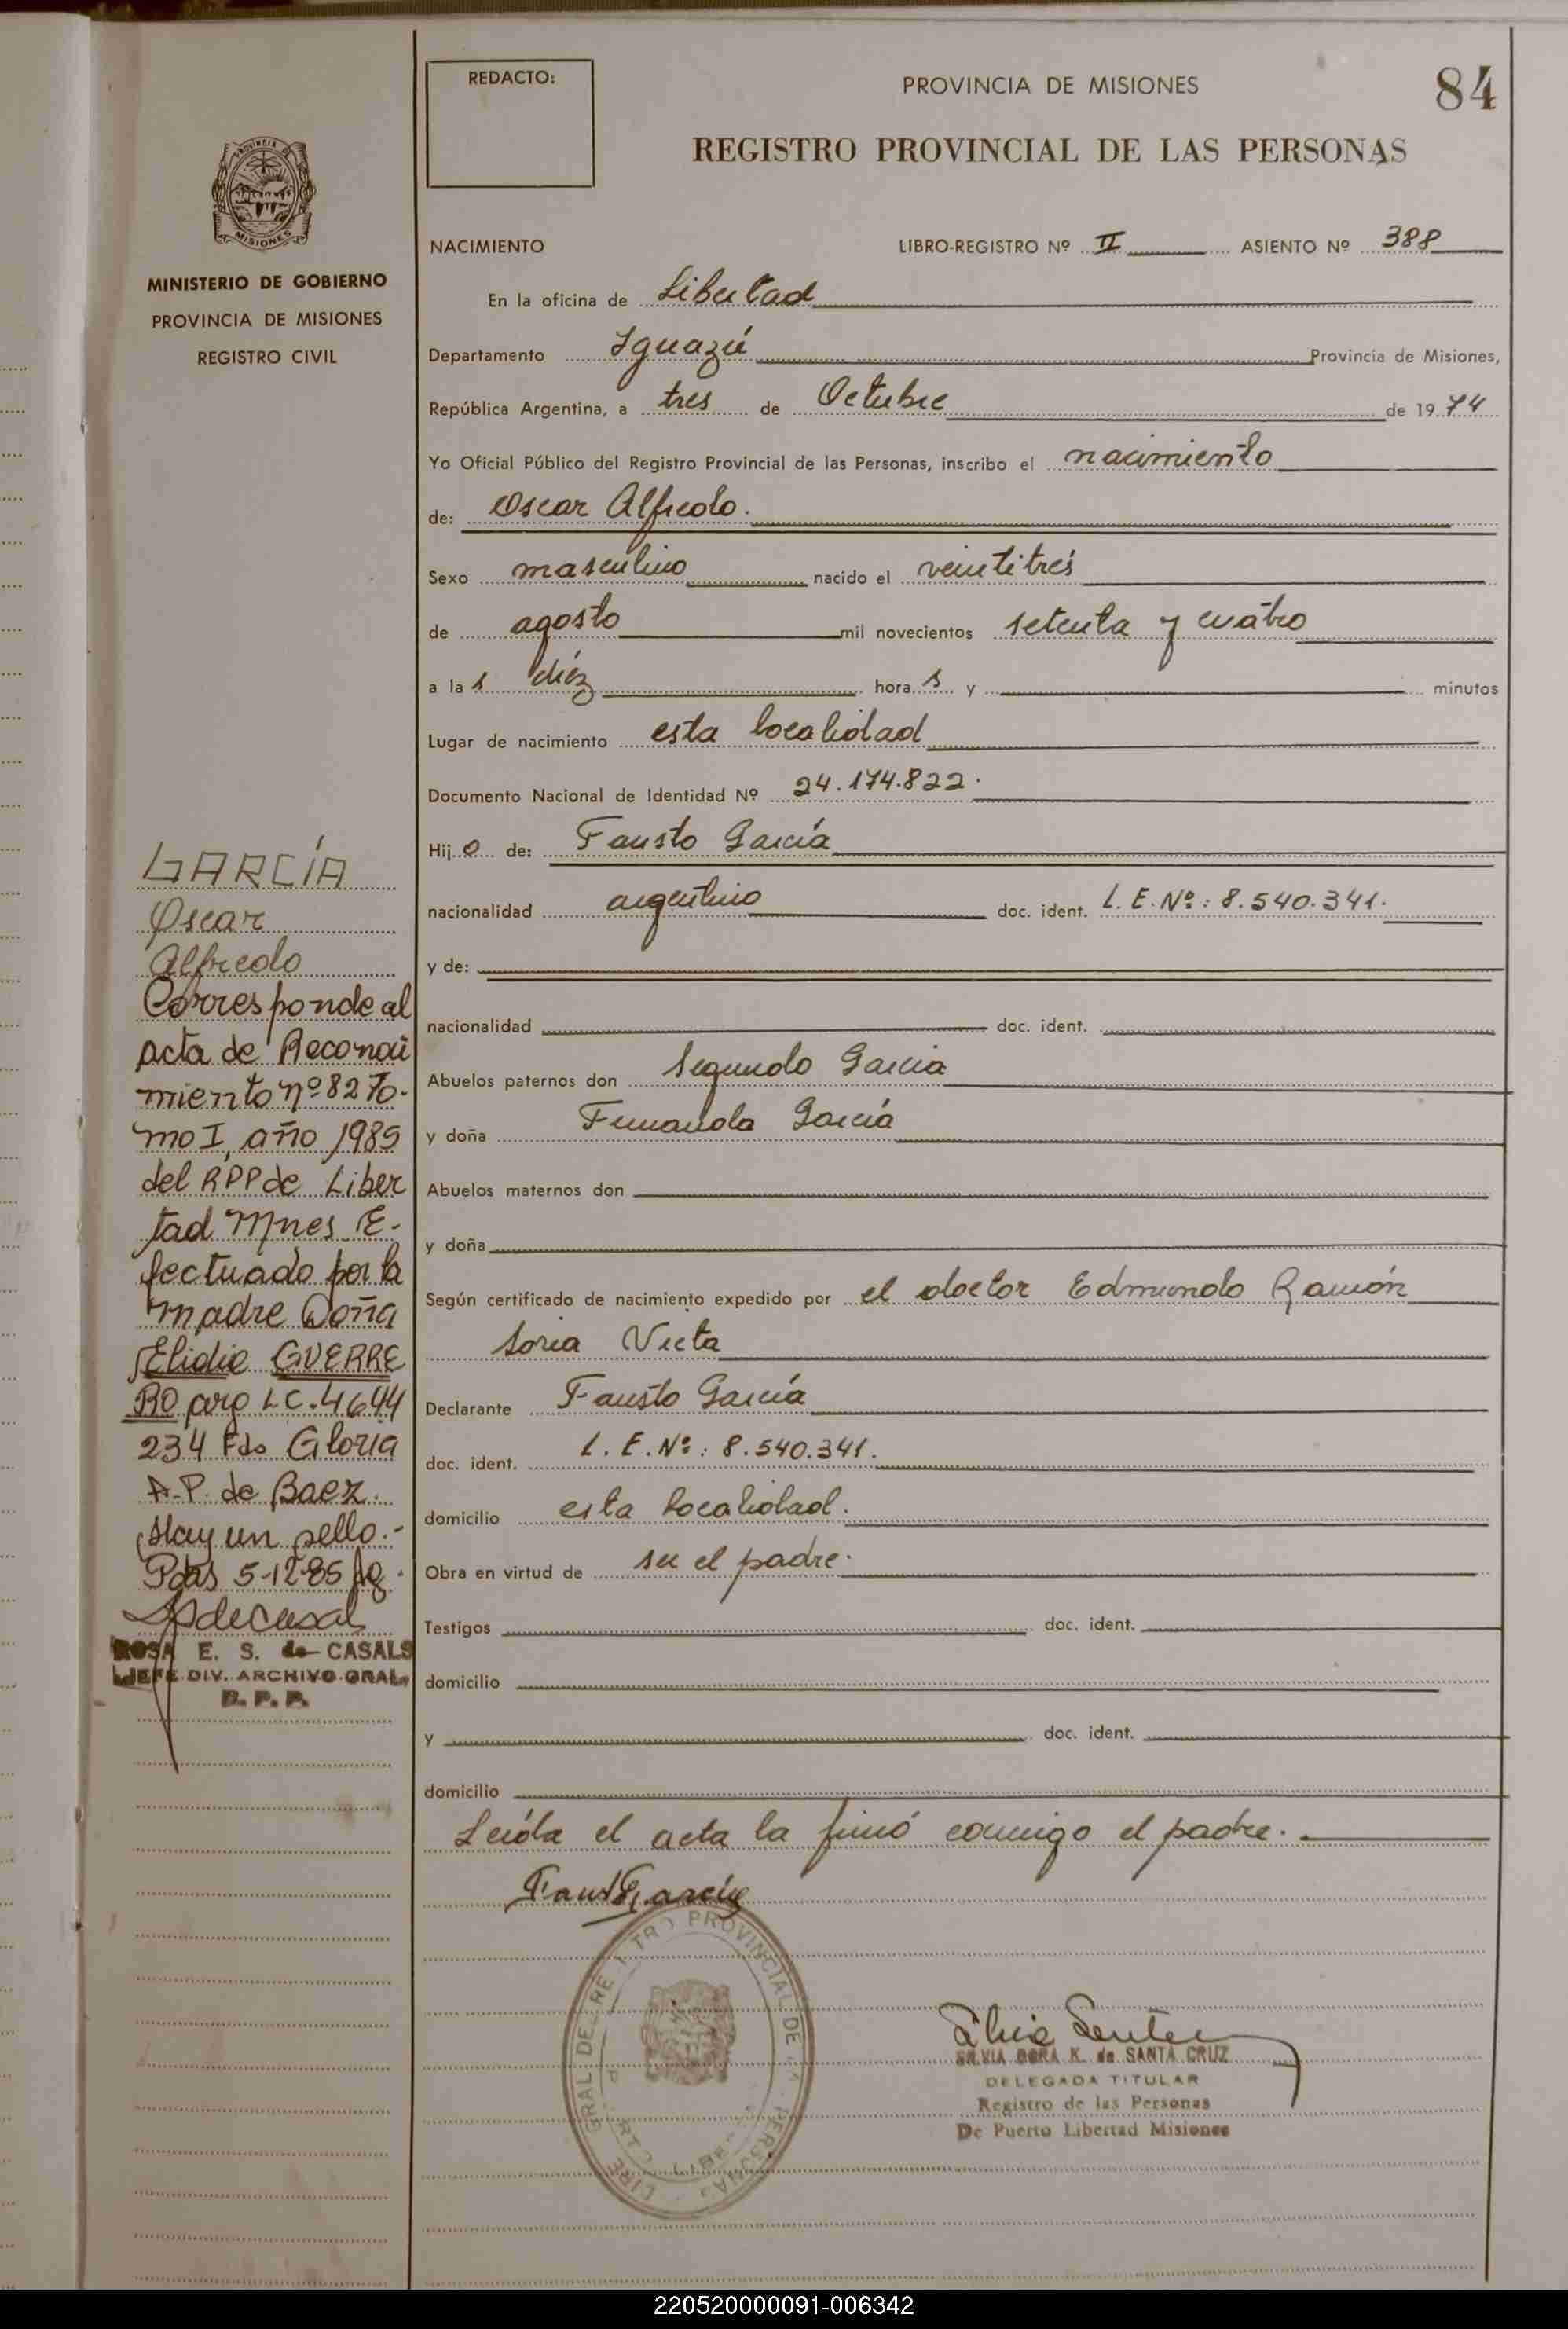 REDACTO:
PROVINCIA DE MISIONES
84
REGISTRO PROVINCIAL DE LAS PERSONAS
MISIONES
MINISTERIO DE GOBIERNO
PROVINCIA DE MISIONES
REGISTRO CIVIL
NACIMIENTO LIBRO-REGISTRO Nº II ASIENTO Nº 388
En la oficina de Libertad
Departamento Iguazú Provincia de Misiones,
República Argentina, a tres de Octubre de 1974
Yo Oficial Público del Registro Provincial de las Personas, inscribo el nacimiento
de: Oscar Alfredo.
Sexo masculino nacido el veintitrés
de agosto mil novecientos setenta y cuátro
a las diéz horas y minutos
Lugar de nacimiento esta localidad
Documento Nacional de Identidad Nº 24.174.822.
Hijo de: Fausto García
nacionalidad argentino doc. ident. L.E.Nº: 8.540.341.
y de:
nacionalidad doc. ident.
Abuelos paternos don Segundo Garcia
y doña Fernanda García
Abuelos maternos don
y doña
Según certificado de nacimiento expedido por el doctor Edmundo Ramón
Soria Vieta
Declarante Fausto García
doc. ident. L.E.Nº: 8.540.341.
domicilio esta localidad.
Obra en virtud de ser el padre.
Testigos doc. ident.
domicilio
y doc. ident.
domicilio
Leída el acta la firmó conmigo el padre.
GARCÍA
Oscar
Alfredo
Corresponde al
acta de Reconoci
miento nº 82 To-
mo I, año 1985
del RPP de Liber
tad Mnes E-
fectuado por la
madre Doña
Elidie GUERRE
RO arg LC.4644
234 Fdo Gloria
A.P. de Baez.
Hay un sello.-
Pdas 5-12-85
ROSA E. S. de CASALS
JEFE DIV. ARCHIVO GRAL.
R. P. P.
SILVIA DORA K. de SANTA CRUZ
DELEGADA TITULAR
Registro de las Personas
De Puerto Libertad Misiones
220520000091-006342